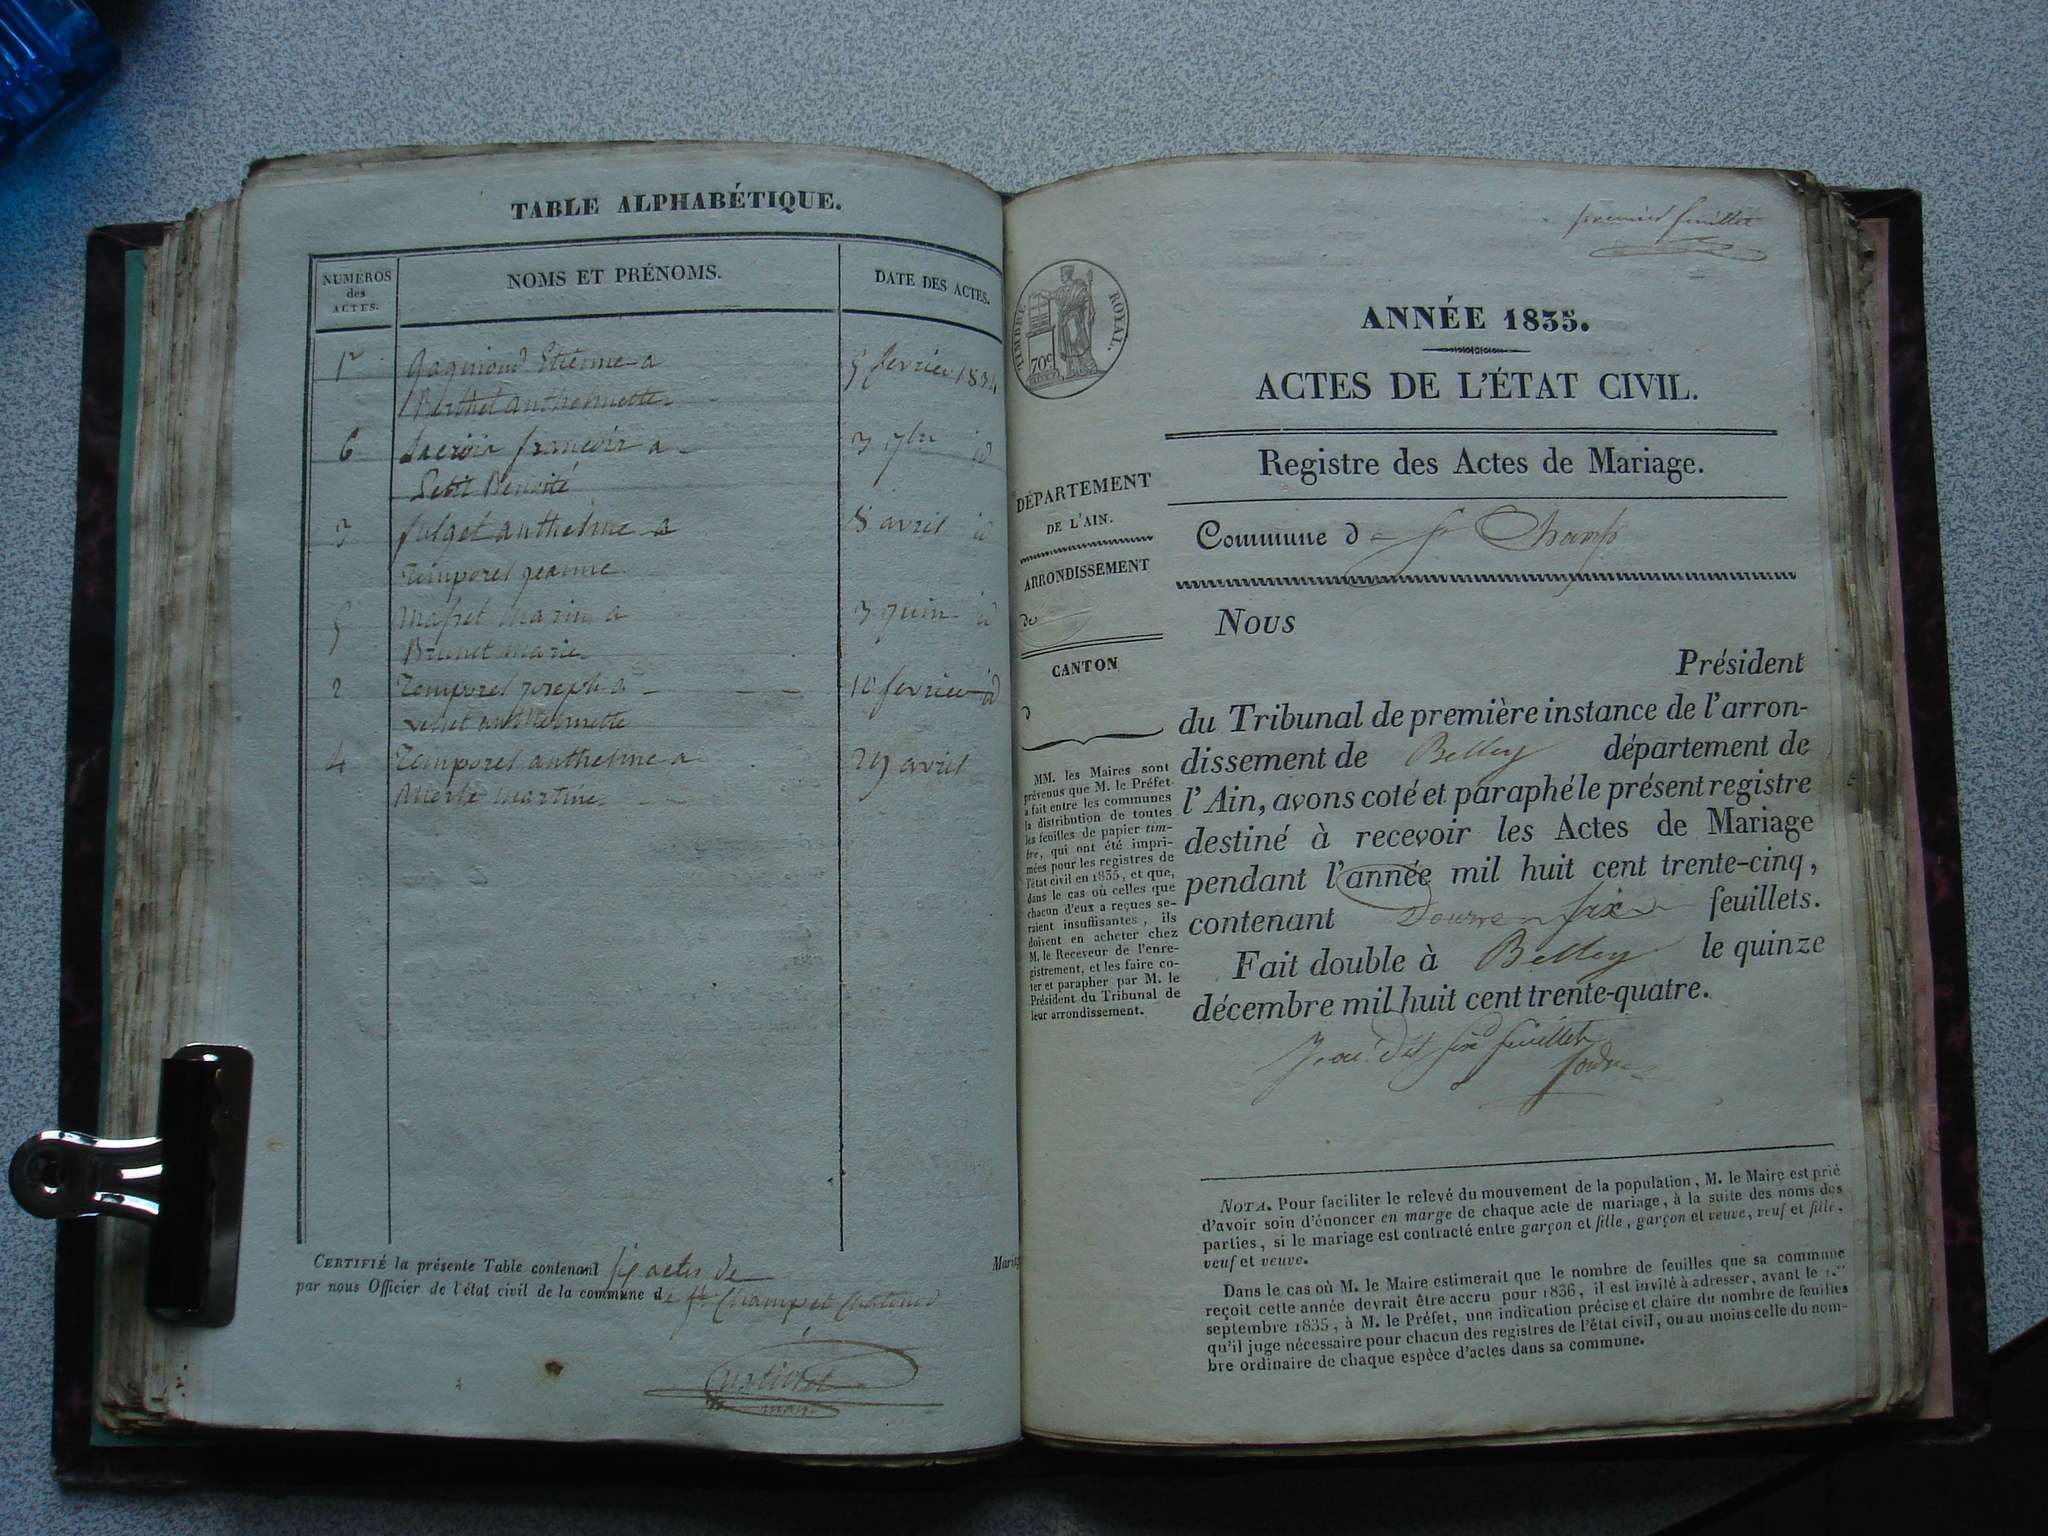 TABLE ALPHABÉTIQUE.
NUMÉROS
des
ACTES.
NOMS ET PRÉNOMS.
DATE DES ACTES.
1r
Etienne a
5 fevrier 1834
Berthet anthelmette
6
Lacroix francois a
3 7bre id
Petit Benoite
3
anthelme a
8 avril id
Temporel jeanne
5
Masset Marin a
3 juin id
Brunet Marie
2
Temporel joseph a
10 fevrier id
anthelmette
4
Temporel anthelme a
29 avril
Merle Martine
CERTIFIÉ la présente Table contenant six actes de Mariage
par nous Officier de l'état civil de la commune de St Champ et
premier feuillet
TIMBRE ROYAL.
70c
ANNÉE 1835.
ACTES DE L'ÉTAT CIVIL.
Registre des Actes de Mariage.
DÉPARTEMENT
DE L'AIN.
ARRONDISSEMENT
de
CANTON
d
MM. les Maires sont
prévenus que M. le Préfet
a fait entre les communes
la distribution de toutes
les feuilles de papier tim-
bre, qui ont été impri-
mées pour les registres de
l'état civil en 1835, et que,
dans le cas où celles que
chacun d'eux a reçues se-
raient insuffisantes, ils
doivent en acheter chez
M. le Receveur de l'enre-
gistrement, et les faire co-
ter et parapher par M. le
Président du Tribunal de
leur arrondissement.
Commune de St Champ
Nous
Président
du Tribunal de première instance de l'arron-
dissement de Belley département de
l'Ain, avons coté et paraphé le présent registre
destiné à recevoir les Actes de Mariage
pendant l'année mil huit cent trente-cinq,
contenant six feuillets.
Fait double à Belley le quinze
décembre mil huit cent trente-quatre.
NOTA. Pour faciliter le relevé du mouvement de la population, M. le Maire est prié
d'avoir soin d'énoncer en marge de chaque acte de mariage, à la suite des noms des
parties, si le mariage est contracté entre garçon et fille, garçon et veuve, veuf et fille,
veuf et veuve.
Dans le cas où M. le Maire estimerait que le nombre de feuilles que sa commune
reçoit cette année devrait être accru pour 1836, il est invité à adresser, avant le 1.er
septembre 1835, à M. le Préfet, une indication précise et claire du nombre de feuilles
qu'il juge nécessaire pour chacun des registres de l'état civil, ou au moins celle du nom-
bre ordinaire de chaque espèce d'actes dans sa commune.